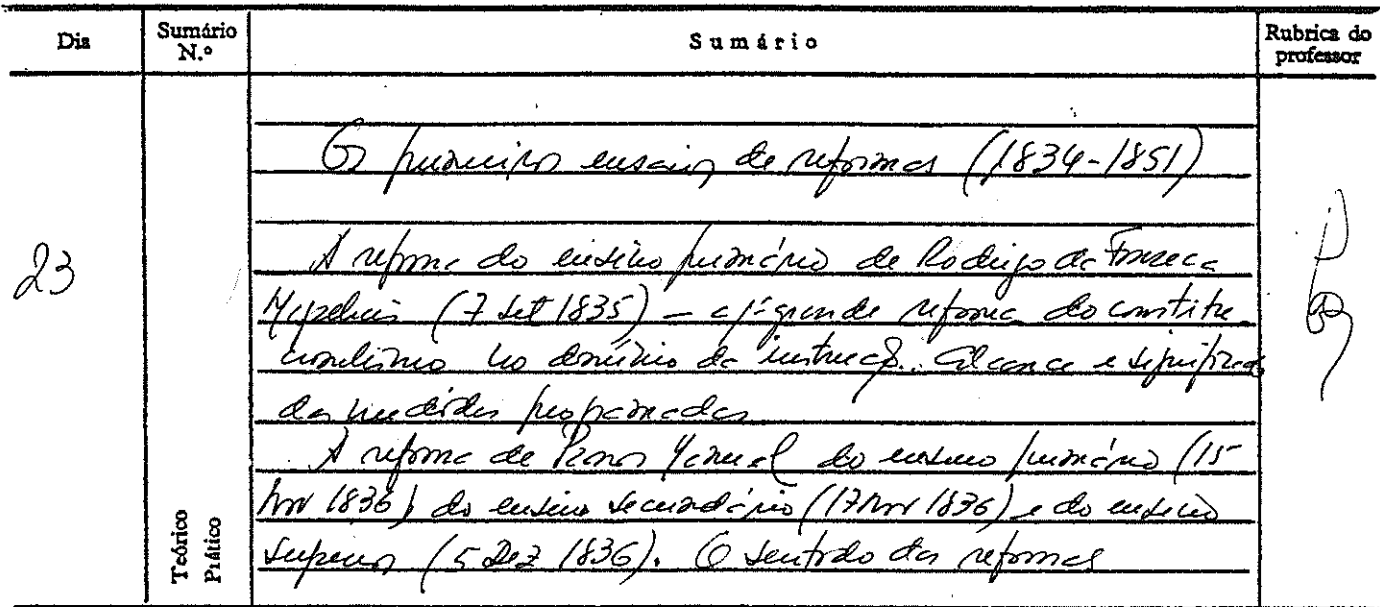 Dia
Sumário N.º
Sumário
Rubrica do professor
Os primeiros ensaios de reformas (1834-1851)
23
A reforma do ensino primário de Rodrigo da Fonseca
Magalhães (7 Set 1835) – a 1ª grande reforma do constitu
cionalismo no domínio da instrução. Alcance e significado
das medidas preconizadas
A reforma de Passos Manuel do ensino primário (15
Nov 1836) do ensino secundário (17 Nov 1836) e do ensino
superior (5 Dez 1836). O sentido das reformas
Teórico
Prático